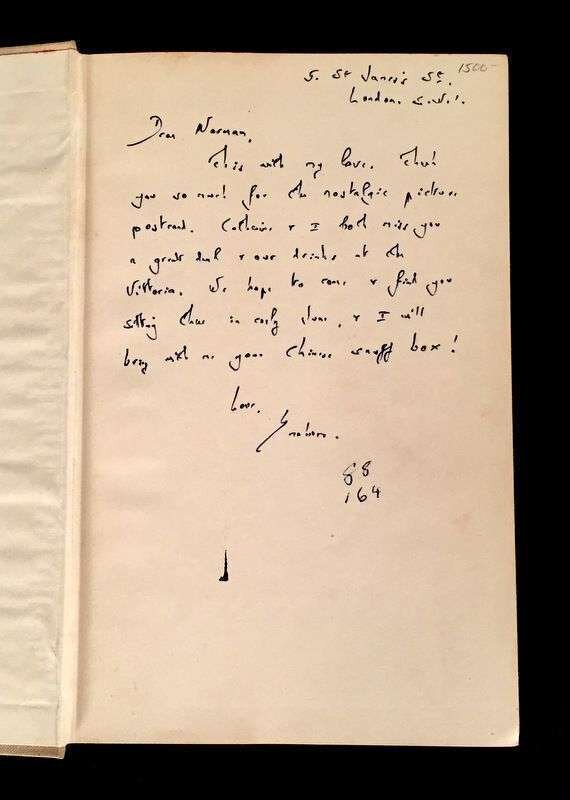 1500-
5. St James's St.
London. S.W.1.
Dear Norman,
This with my love. Thank
you so much for the nostalgic picture
postcard. Catherine & I both miss you
a great deal & our drinks at the
Vittoria. We hope to come & find you
sitting there in early June, & I will
bring with me your Chinese snuff box!
Love,
Graham.
88
164